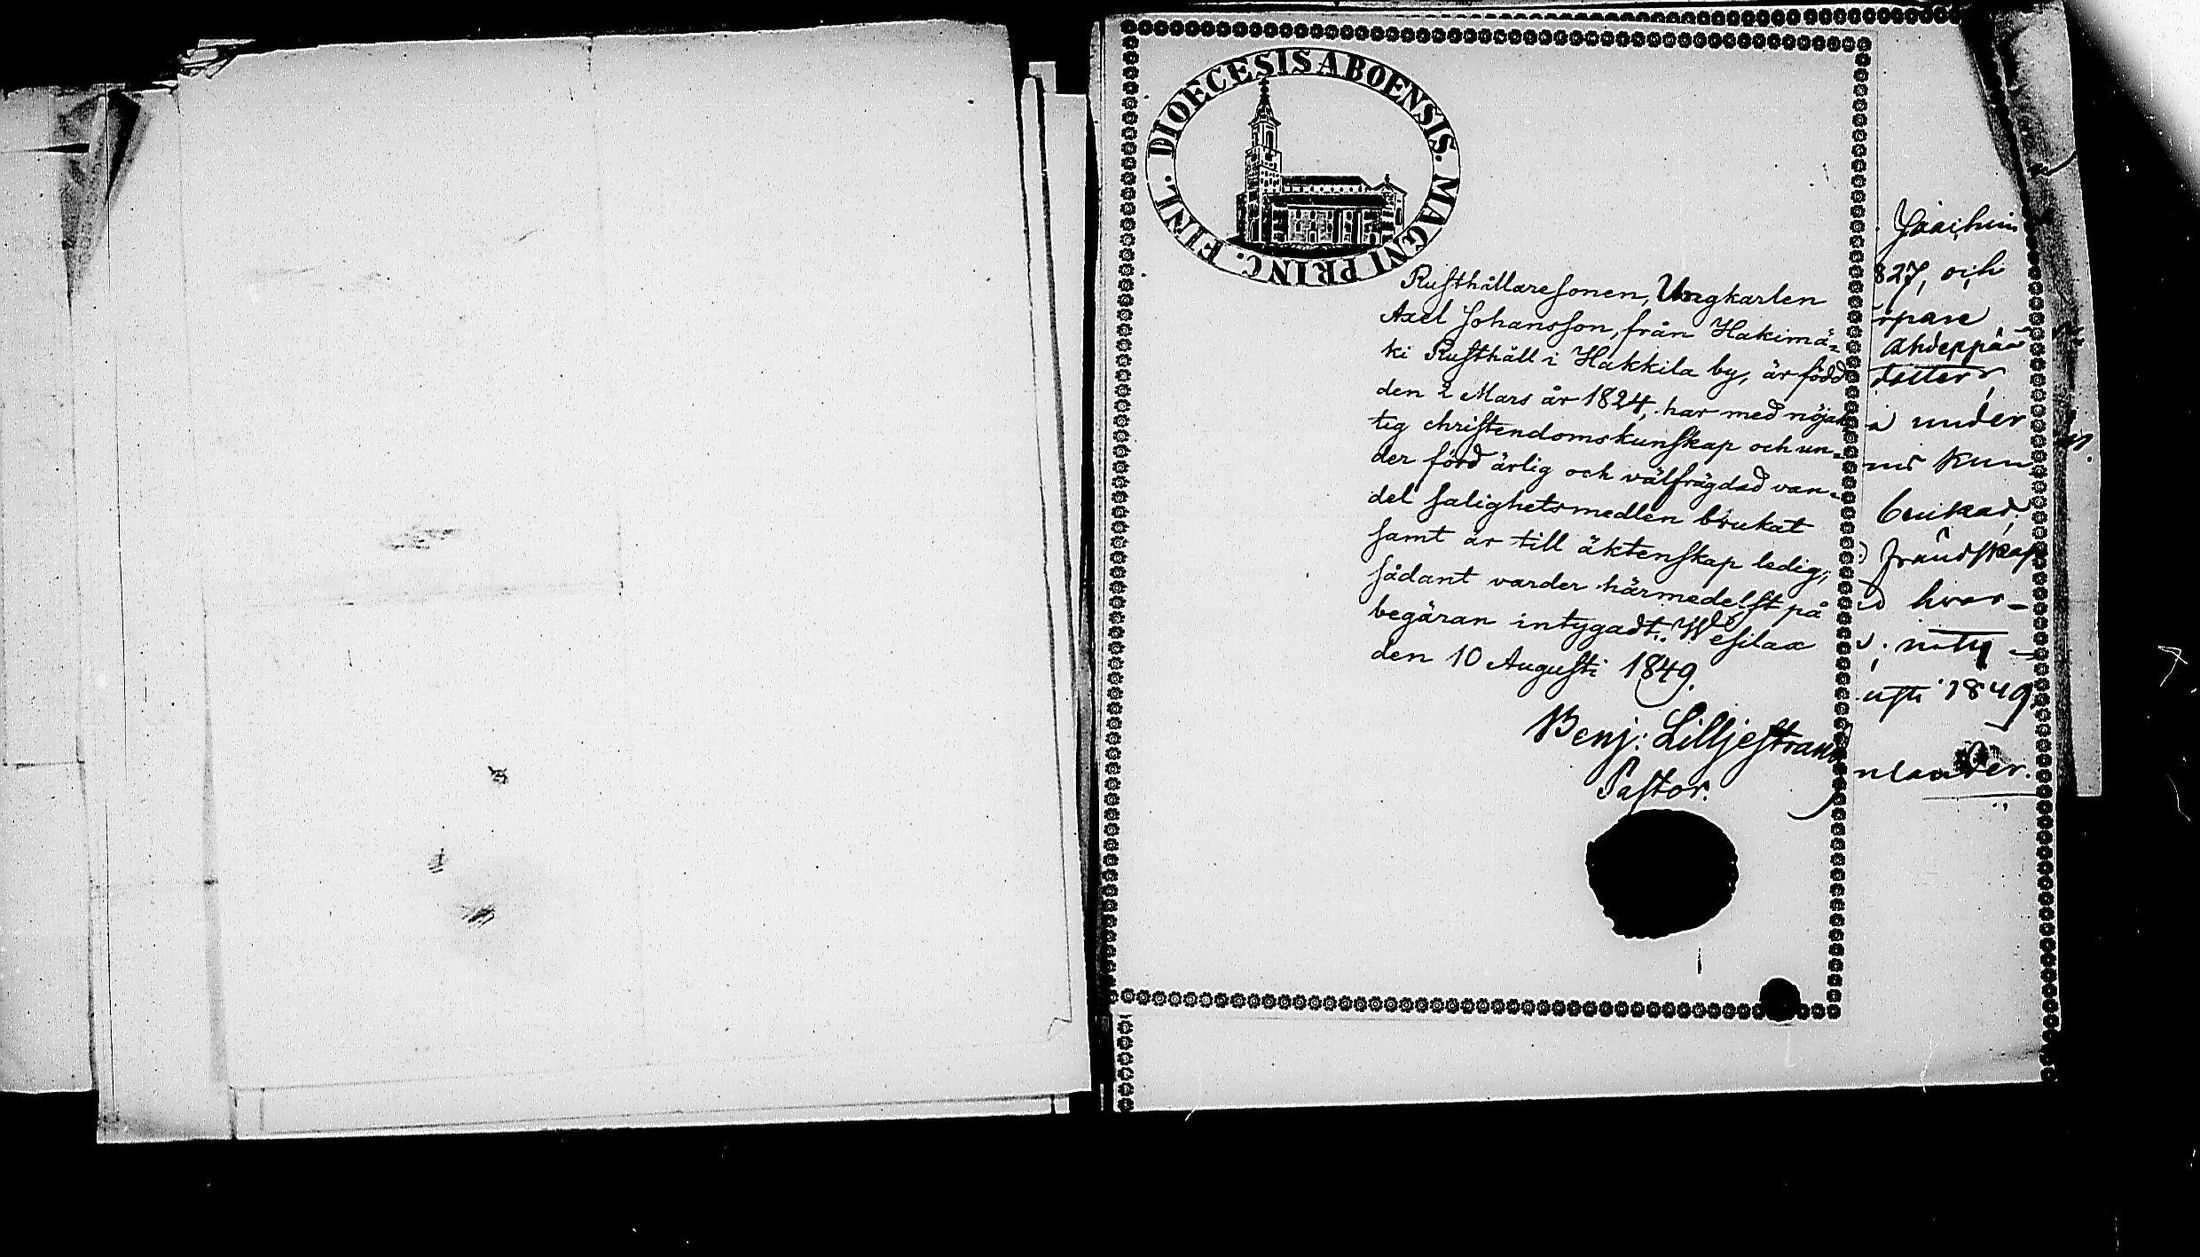 DIOECESIS ABOENSIS. MAGNI PRINC. FINL.
Rusthållaresonen, Ungkarlen
Axel Johansson, från Hakimä-
ki Rusthåll i Hakkila by, är född
den 2 Mars år 1824, har med nöjak
tig christendomskunskap och un-
der förd ärlig och välfrägdad van-
del salighetsmedlen brukat
samt är till äktenskap ledig;
sådant varder härmedelst på
begäran intygadt. Wesilax
den 10 Augusti 1849.
Benj: Lilljestrand
Pastor.
Joachim
827, och
rpare
dotter
under
kun
brukad
frändskap
hvar-
usti 1849
nlander.